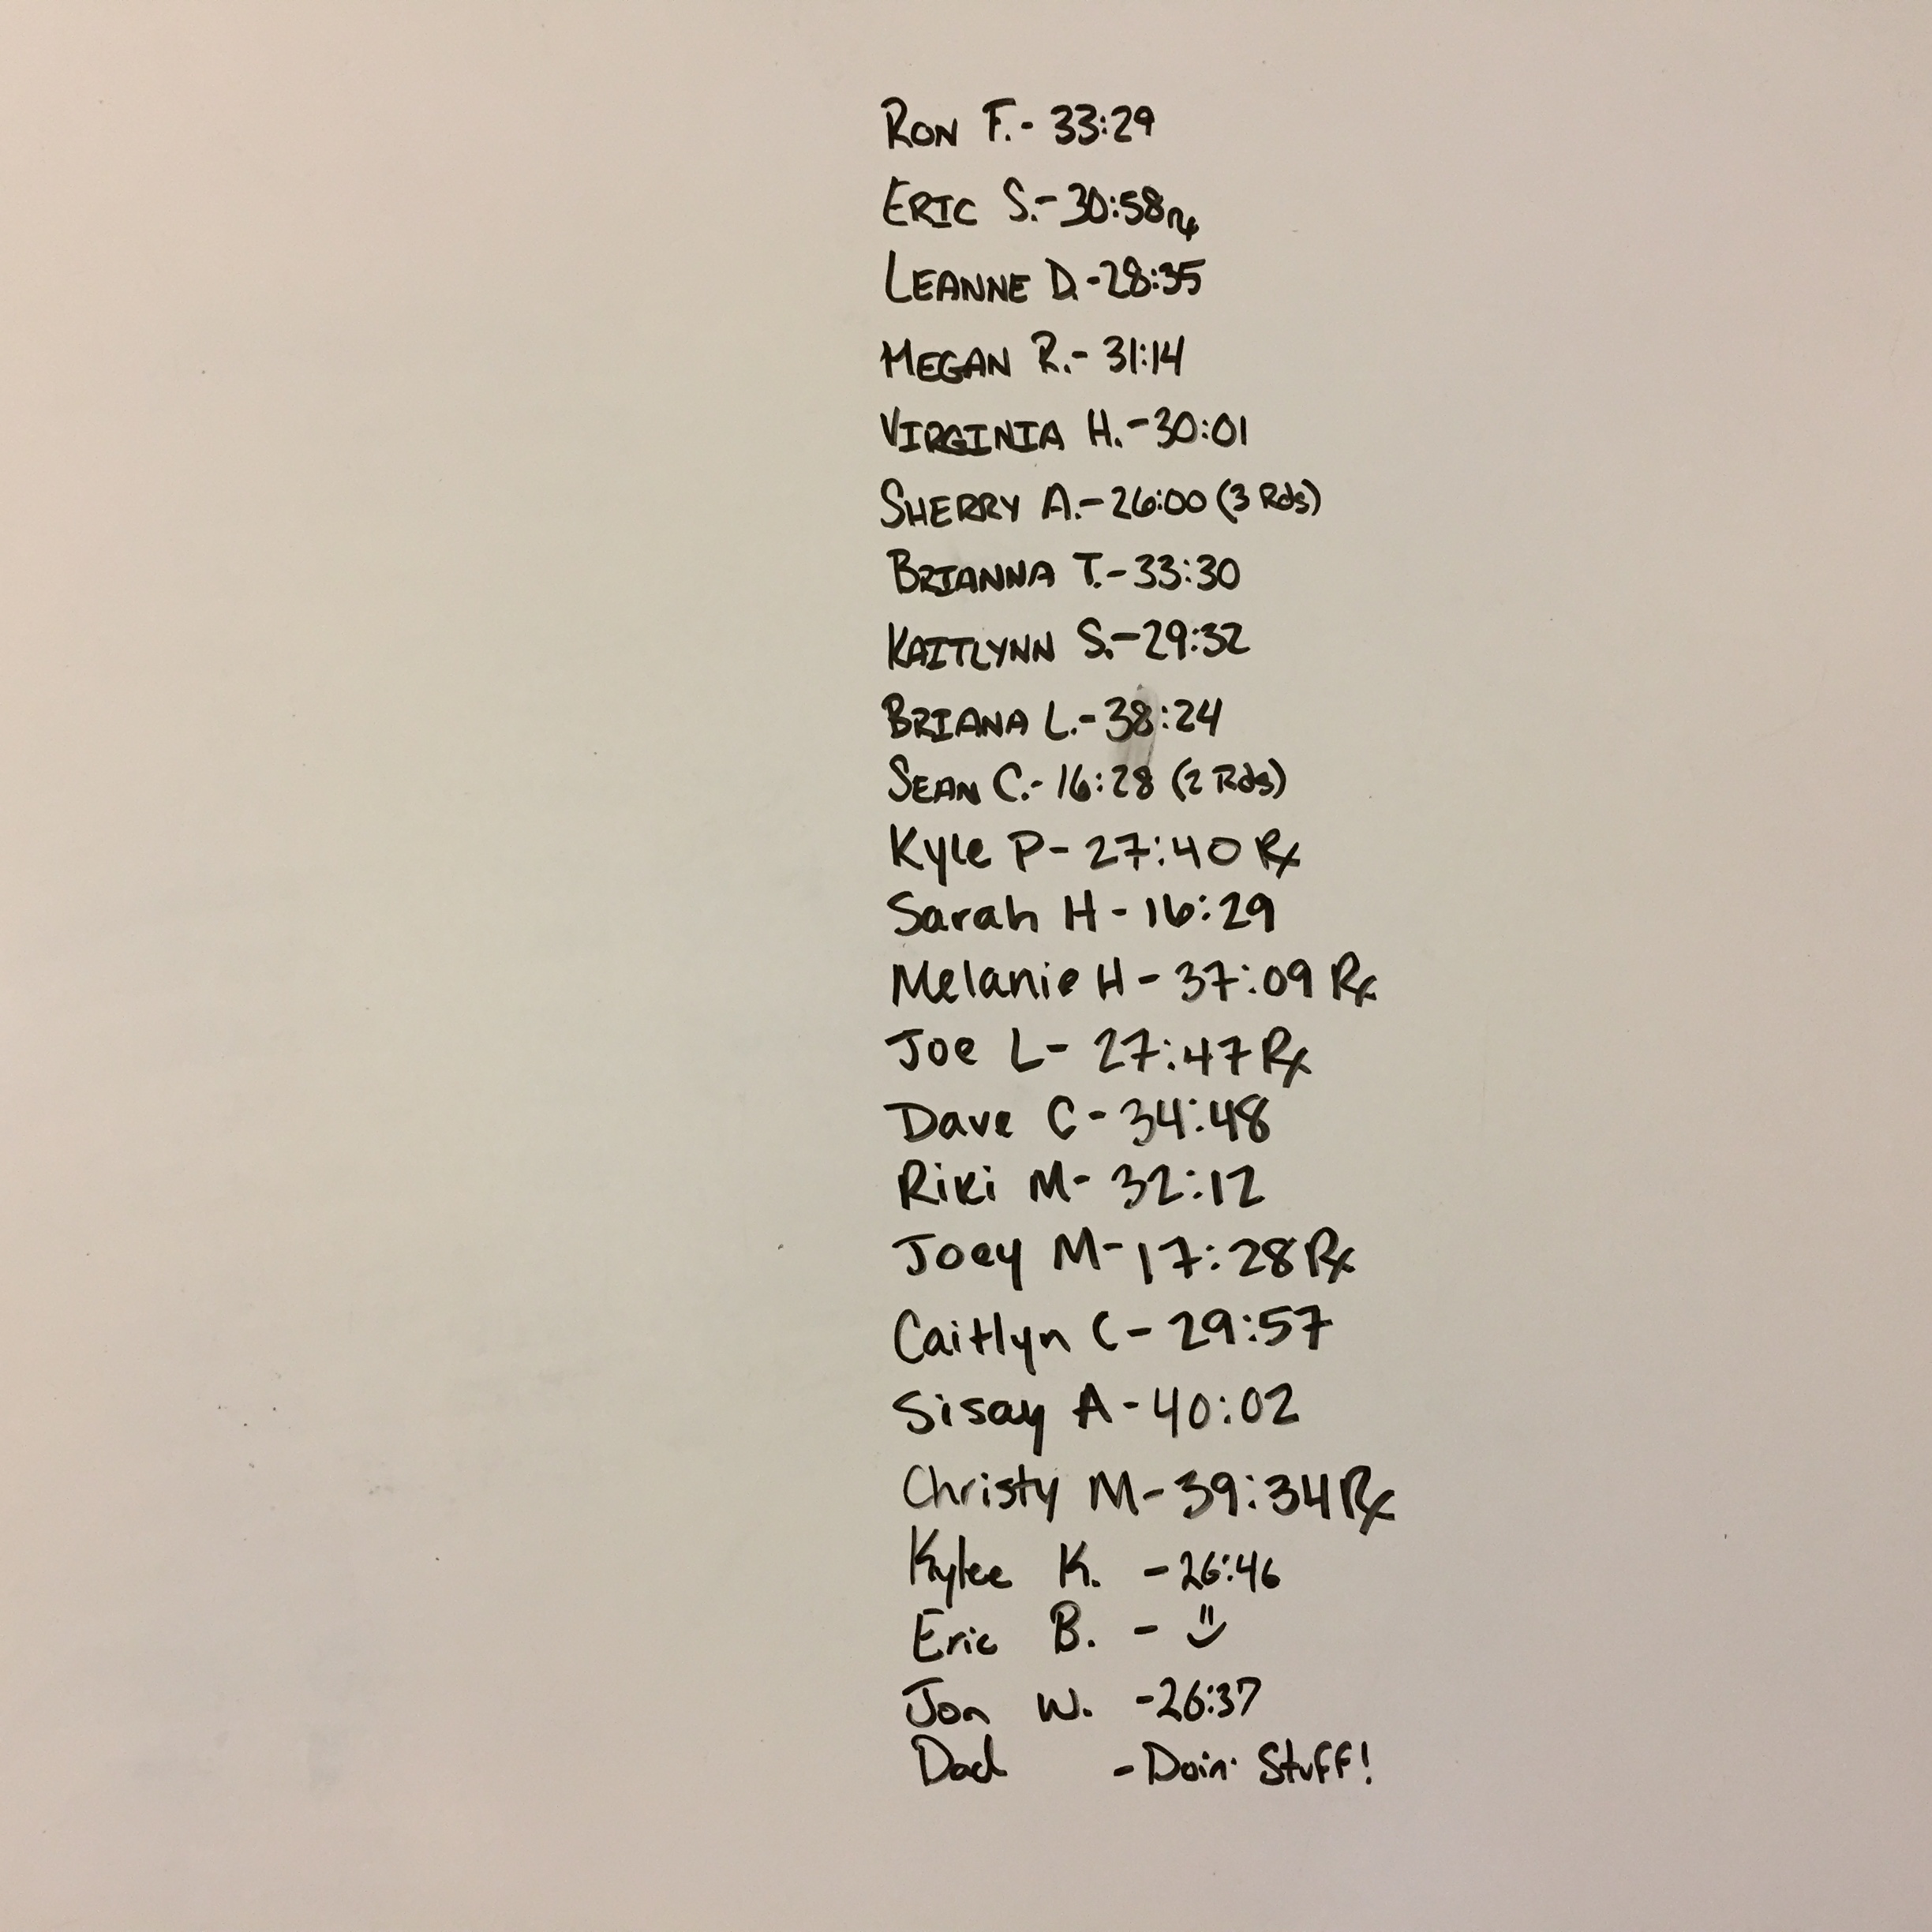 RON F.- 33:29
ERIC S.- 30:58 Rx
LEANNE D.-28:35
MEGAN R.- 31:14
VIRGINIA H.-30:01
SHERRY A.- 26:00 (3 Rds)
BRIANNA T.- 33:30
KAITLYNN S.-29:32
BRIANA L.-38:24
SEAN C.- 16:28 (2 Rds)
Kyle P- 27:40 Rx
Sarah H - 16:29
Melanie H - 37:09 Rx
Joe L- 27:47 Rx
Dave C - 34:48
Riki M- 32:12
Joey M- 17:28 Rx
Caitlyn C - 29:57
Sisay A - 40:02
Christy M- 39:34 Rx
Kylee K. - 26:46
Eric B. -
Jon W. -26:37
Dad - Doin' Stuff!